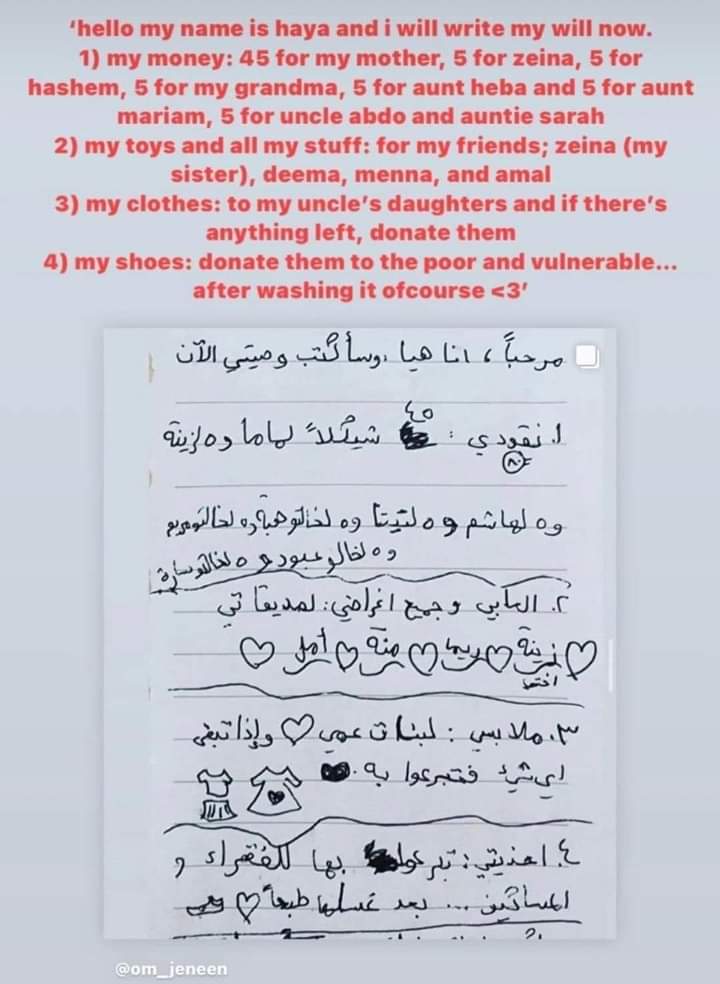 ‘hello my name is haya and i will write my will now.
1) my money: 45 for my mother, 5 for zeina, 5 for
hashem, 5 for my grandma, 5 for aunt heba and 5 for aunt
mariam, 5 for uncle abdo and auntie sarah
2) my toys and all my stuff: for my friends; zeina (my
sister), deema, menna, and amal
3) my clothes: to my uncle’s daughters and if there’s
anything left, donate them
4) my shoes: donate them to the poor and vulnerable...
after washing it ofcourse <3’
مرحباً، انا هيا، وسأكتب وصيتي الآن
٤٥
١. نقودي: شيكلاً لماما و٥ لزينة
٨٠
و٥ لهاشم و٥ لتيتا و٥ لخالتو هبة و٥ لخالتو مريم
و٥ لخالو عبود و ٥ لخالتو سارة
٢. العابي وجميع اغراضي: لصديقاتي
زينة ديما منة أمل
اختي
٣. ملابسي: لبنات عمي وإذا تبقى
اي شيء فتبرعوا به.
٤. احذيتي: تبرعوا بها للفقراء و
المساكين... بعد غسلها طبعاً
@om_jeneen